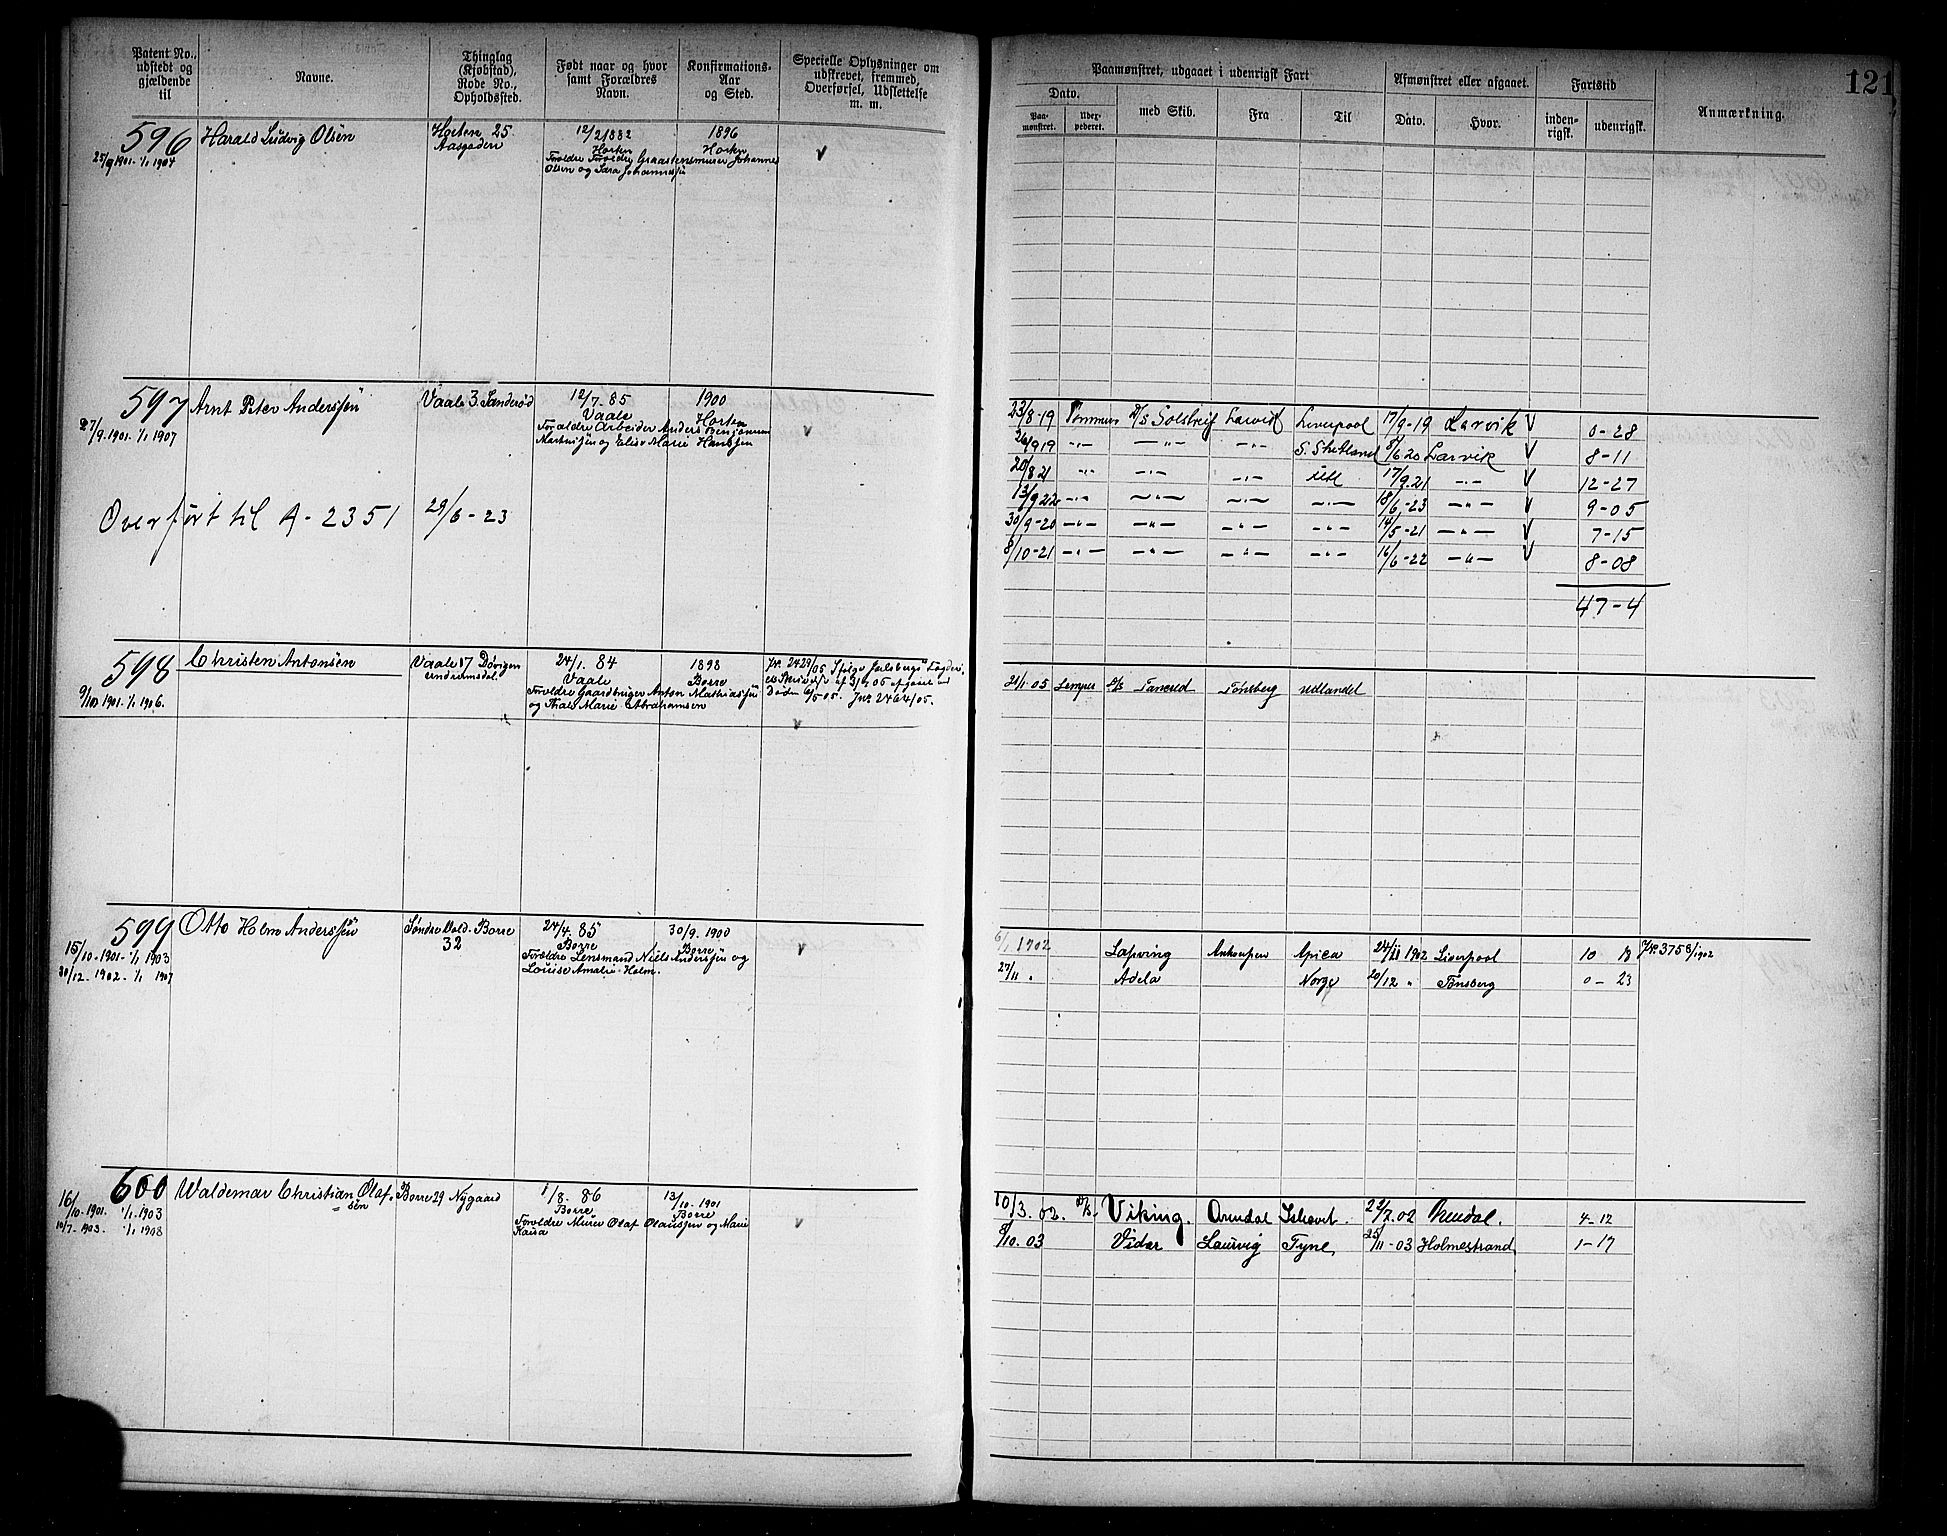 121
Patent No., udstedt og gjældende til
Navne.
Thinglag (Kjøbstad), Rode No., Opholdssted.
Født naar og hvor samt Forældres Navn.
Konfirmations-Aar og Sted.
Specielle Oplysninger om udskrevet, fremmed, Overførsel, Udslettelse m. m.
Paamønstret, udgaaet i udenrigsk Fart
Dato.
Paa-mønstret.
med Skib.
Fra
Til
Afmønstret eller afgaaet.
Dato.
Hvor.
Fartstid
inden-rigsk.
udenrigsk.
Anmærkning.
596 Harald Ludvig Olsen Horten 25. 12/2 1882 1896
25/9 1901 - 1/1 1904 Aasgaden Horten Horten v
Forældre Graastensmurer Johannes
Olsen og Sara
597 Arnt Peter Anderssen Vaale 3. Sanderød 12/7. 85 1900
27/9. 1901. 1/1 1907 Vaale Horten v
Forældre Arbeider Anders Benjamin
Martinsen og Elise Marie Hansen
Overført til A - 2351 29/6 - 23
23/8-19 D/S Solstreif Larvik Liverpool 17/9-19 Larvik V 0-28
26/9 19 -"- -"- -"- S. Shetland 8/6 20 Larvik V 8-11
20/8 21 -"- -"- -"- 17/9.21 -"- V 12-27
13/9 22 -"- -"- -"- -"- 18/6-23 -"- V 9-05
30/9-20 -"- -"- -"- -"- 14/5-21 -"- V 7-15
8/10-21 -"- -"- -"- -"- 16/6-22 -"- V 8-08
47-4
598 Christen Antonsen Vaale 17 24/1. 84 1898
9/10 1901. 1/1 1906. Vaale Borre
Forældre Gaardbruger Anton Mathiassen
og Marie Abrahamsen
Døden 6/5 05. Jnr. 2464/05.
v
D/S Tancred Tønsberg Udlandet
599 Otto Holm Anderssen Søndre Vold. Borre 24/4. 85 30/9. 1900
15/10-1901-1/1 1903 32 Borre Borre v
30/12-1902-1/1 1907 Forældre Lensmand Niels Anderssen og
Louise Amalie Holm.
6/1 1902 Lapwing Antwerpen 24/11 1902 Liverpool 10 18
27/11 " Adela Norge 20/12 " Tønsberg 0-23
600 Waldemar Christian Olaf- Borre 29 Nygaard 1/8. 86 13/10-1901
16/10-1901. 1/1. 1903 sen Borre Borre
10/7-1903. 1/1 1908 Forældre Murer Olaf Olaussen og Marie v
Kaisa
10/3. 02. D/S Viking. Arendal Ishavet. 29/7.02 Arendal. 4-12
8/10. 03 Vidar Laurvig Tyne 25/11-03 Holmestrand 1-17